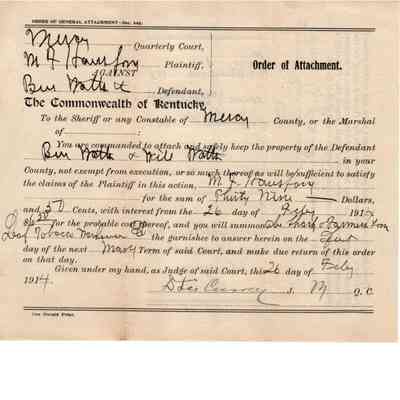 ORDER OF GENERAL ATTACHMENT—Sec. 245.
Mercer Quarterly Court,
M. F. Plaintiff,
AGAINST
Order of Attachment.
Ben Watts Defendant,
The Commonwealth of Kentucky,
To the Sheriff or any Constable of Mercer County, or the Marshal
of :
You are commanded to attach and safely keep the property of the Defendant
Ben Watts & Will Watts
in your
County, not exempt from execution, or so much thereof as will be sufficient to satisfy
the claims of the Plaintiff in this action, M. F.
for the sum of Thirty Nine Dollars,
and 50 Cents, with interest from the 26 day of Feby 191
for the probable cost hereof, and you will summon the
Leaf Tobacco the garnishee to answer herein on the first
day of the next March Term of said Court, and make due return of this order
on that day.
Given under my hand, as Judge of said Court, this 26 day of Feby
1914.
J. M Q. C.